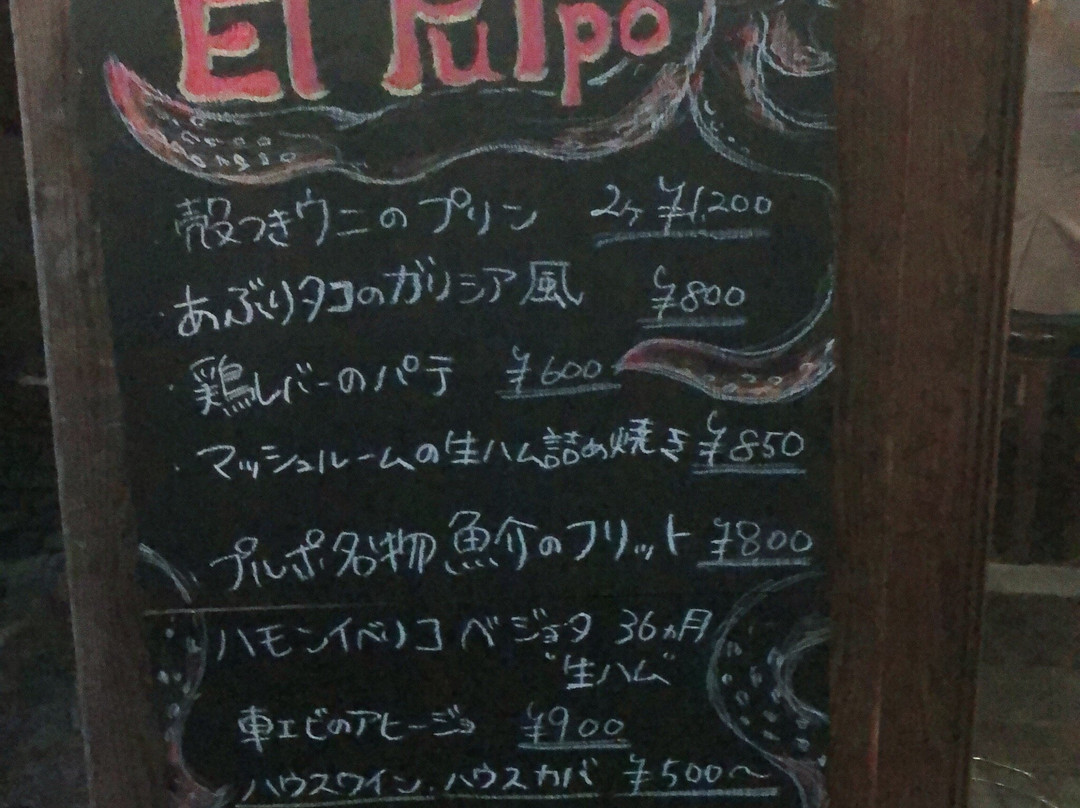 El Pulpo
殻つきウニのプリン 2ヶ ¥1,200
・あぶりタコのガリシア風 ¥800
・鶏レバーのパテ ¥600
・マッシュルームの生ハム詰め焼き ¥850
プルポ名物 魚介のフリット ¥800
ハモンイベリコ ベジョータ 36ヵ月
"生ハム"
車エビのアヒージョ ¥900
ハウスワイン、ハウスカバ ¥500〜